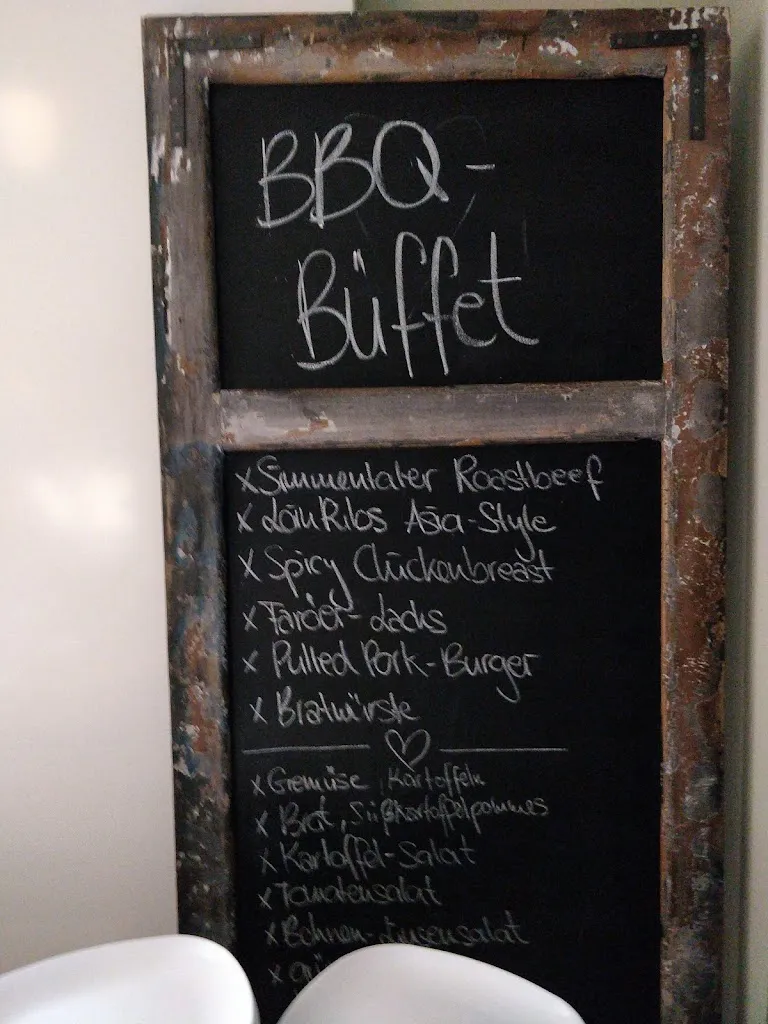 BBQ-
Büffet
x Simmentaler Roastbeef
x LoinRibs Asia-Style
x Spicy Chickenbreast
x Faröer-Lachs
x Pulled Pork-Burger
x Bratwürste
x Gemüse, Kartoffeln
x Brot, Süßkartoffelpommes
x Kartoffel-Salat
x Tomatensalat
x Bohnen-Linsensalat
x